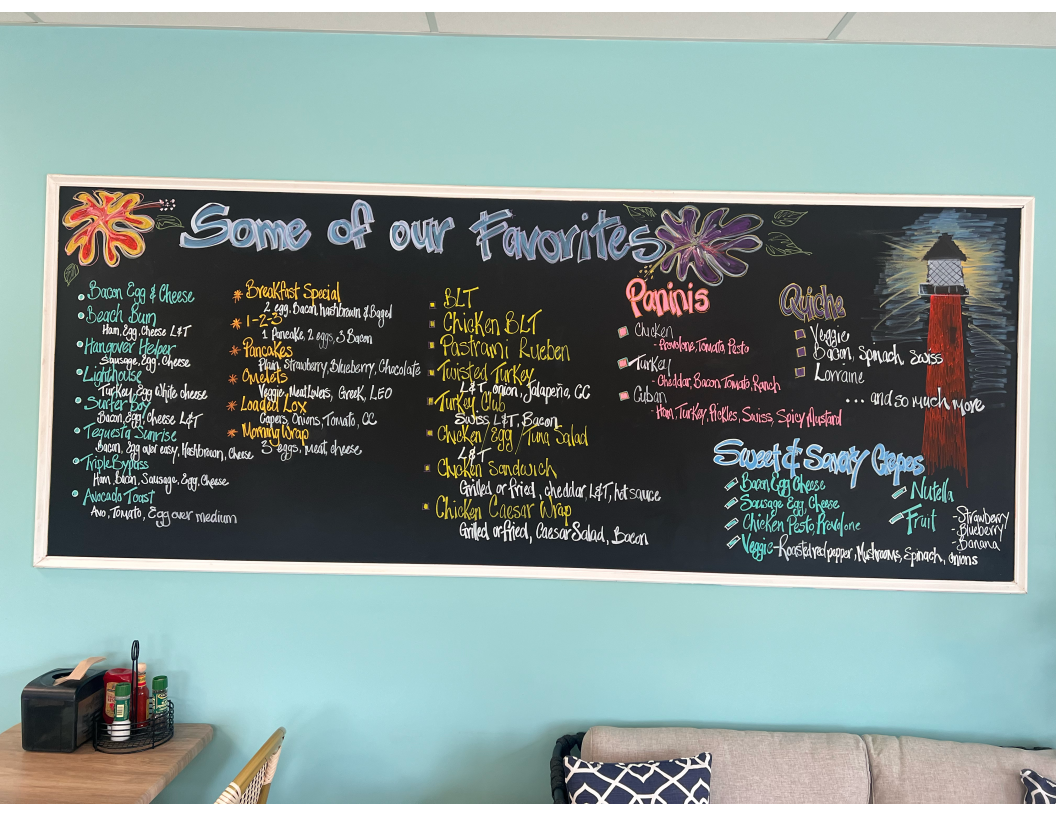 Some of our Favorites
Bacon Egg & Cheese
Beach Bum
Ham, Egg, Cheese L&T
Hangover Helper
Sausage, Egg, Cheese
Lighthouse
Turkey, Egg White cheese
Surfer Boy
Bacon, Egg, Cheese L&T
Tequesta Sunrise
Bacon, Egg over easy, Hashbrown, Cheese
Triple Bypass
Ham, Bacon, Sausage, Egg, Cheese
Avocado Toast
Avo, Tomato, Egg over medium
Breakfast Special
2 egg, Bacon, hashbrown & Bagel
1-2-3
1 Pancake, 2 eggs, 3 Bacon
Pancakes
Plain, Strawberry, Blueberry, Chocolate
Omelets
Veggie, Meat Lovers, Greek, LEO
Loaded Lox
Capers, Onions, Tomato, CC
Morning Wrap
3 eggs, meat, cheese
BLT
Chicken BLT
Pastrami Rueben
Twisted Turkey
L&T, onion, Jalapeño, CC
Turkey Club
Swiss, L&T, Bacon
Chicken/Egg/Tuna Salad
L&T
Chicken Sandwich
Grilled or fried, cheddar, L&T, hot sauce
Chicken Caesar Wrap
Grilled or fried, Caesar Salad, Bacon
Paninis
Chicken
- Provolone, Tomato, Pesto
Turkey
- Cheddar, Bacon, Tomato, Ranch
Cuban
- Ham, Turkey, Pickles, Swiss, Spicy Mustard
Quiche
Veggie
Bacon, Spinach, Swiss
Lorraine
... and so much more
Sweet & Savory Crepes
Bacon Egg Cheese
Sausage Egg, Cheese
Chicken Pesto, Provolone
Veggie - Roasted red pepper, Mushrooms, Spinach, onions
Nutella
Fruit
- Strawberry
- Blueberry
- Banana